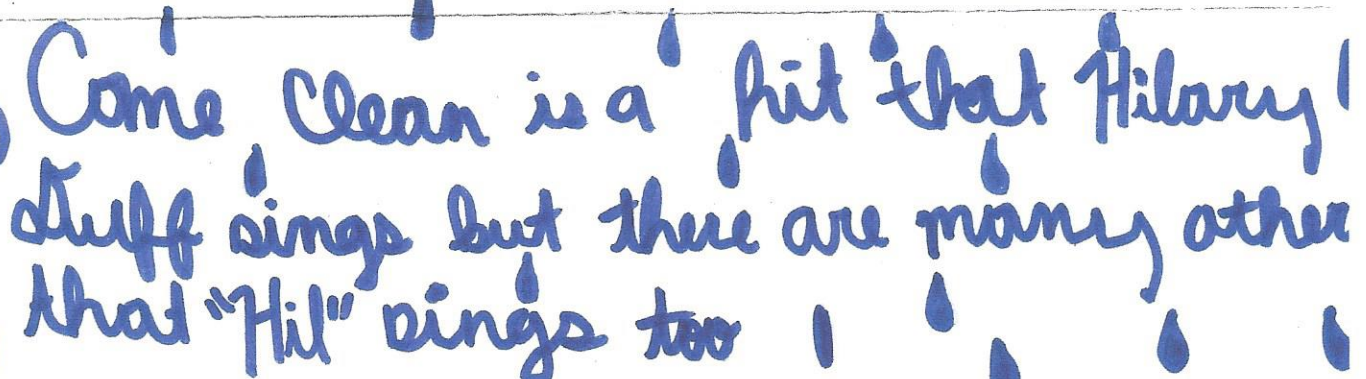 Come Clean is a hit that Hilary
Duff sings but there are many other
that "Hil" sings too